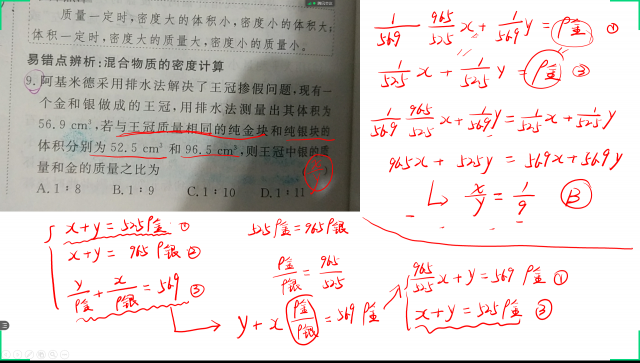 质量一定时,密度大的体积小,密度小的体积大;
体积一定时,密度大的质量大,密度小的质量小。
易错点辨析:混合物质的密度计算
9. 阿基米德采用排水法解决了王冠掺假问题,现有一
个金和银做成的王冠,用排水法测量出其体积为
56.9 cm³,若与王冠质量相同的纯金块和纯银块的
体积分别为 52.5 cm³ 和 96.5 cm³,则王冠中银的质
量和金的质量之比为
A.1∶8 B.1∶9 C.1∶10 D.1∶11
x+y=525ρ金 ①
x+y=965ρ银 ②
y/ρ金+x/ρ银=569 ③
525ρ金=965ρ银
ρ金/ρ银=965/525
y+x(ρ金/ρ银)=569ρ金
965/525 x+y=569ρ金 ①
x+y=525ρ金 ②
1/569 965/525 x+1/569 y=ρ金 ①
1/525 x+1/525 y=ρ金 ②
1/569 965/525 x+1/569 y=1/525 x+1/525 y
965x+525y=569x+569y
x/y=1/9 B